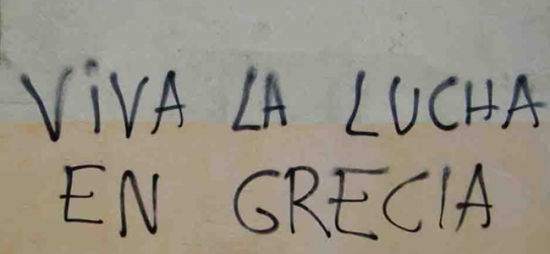 ViVA LA LUCHA
EN GRECIA